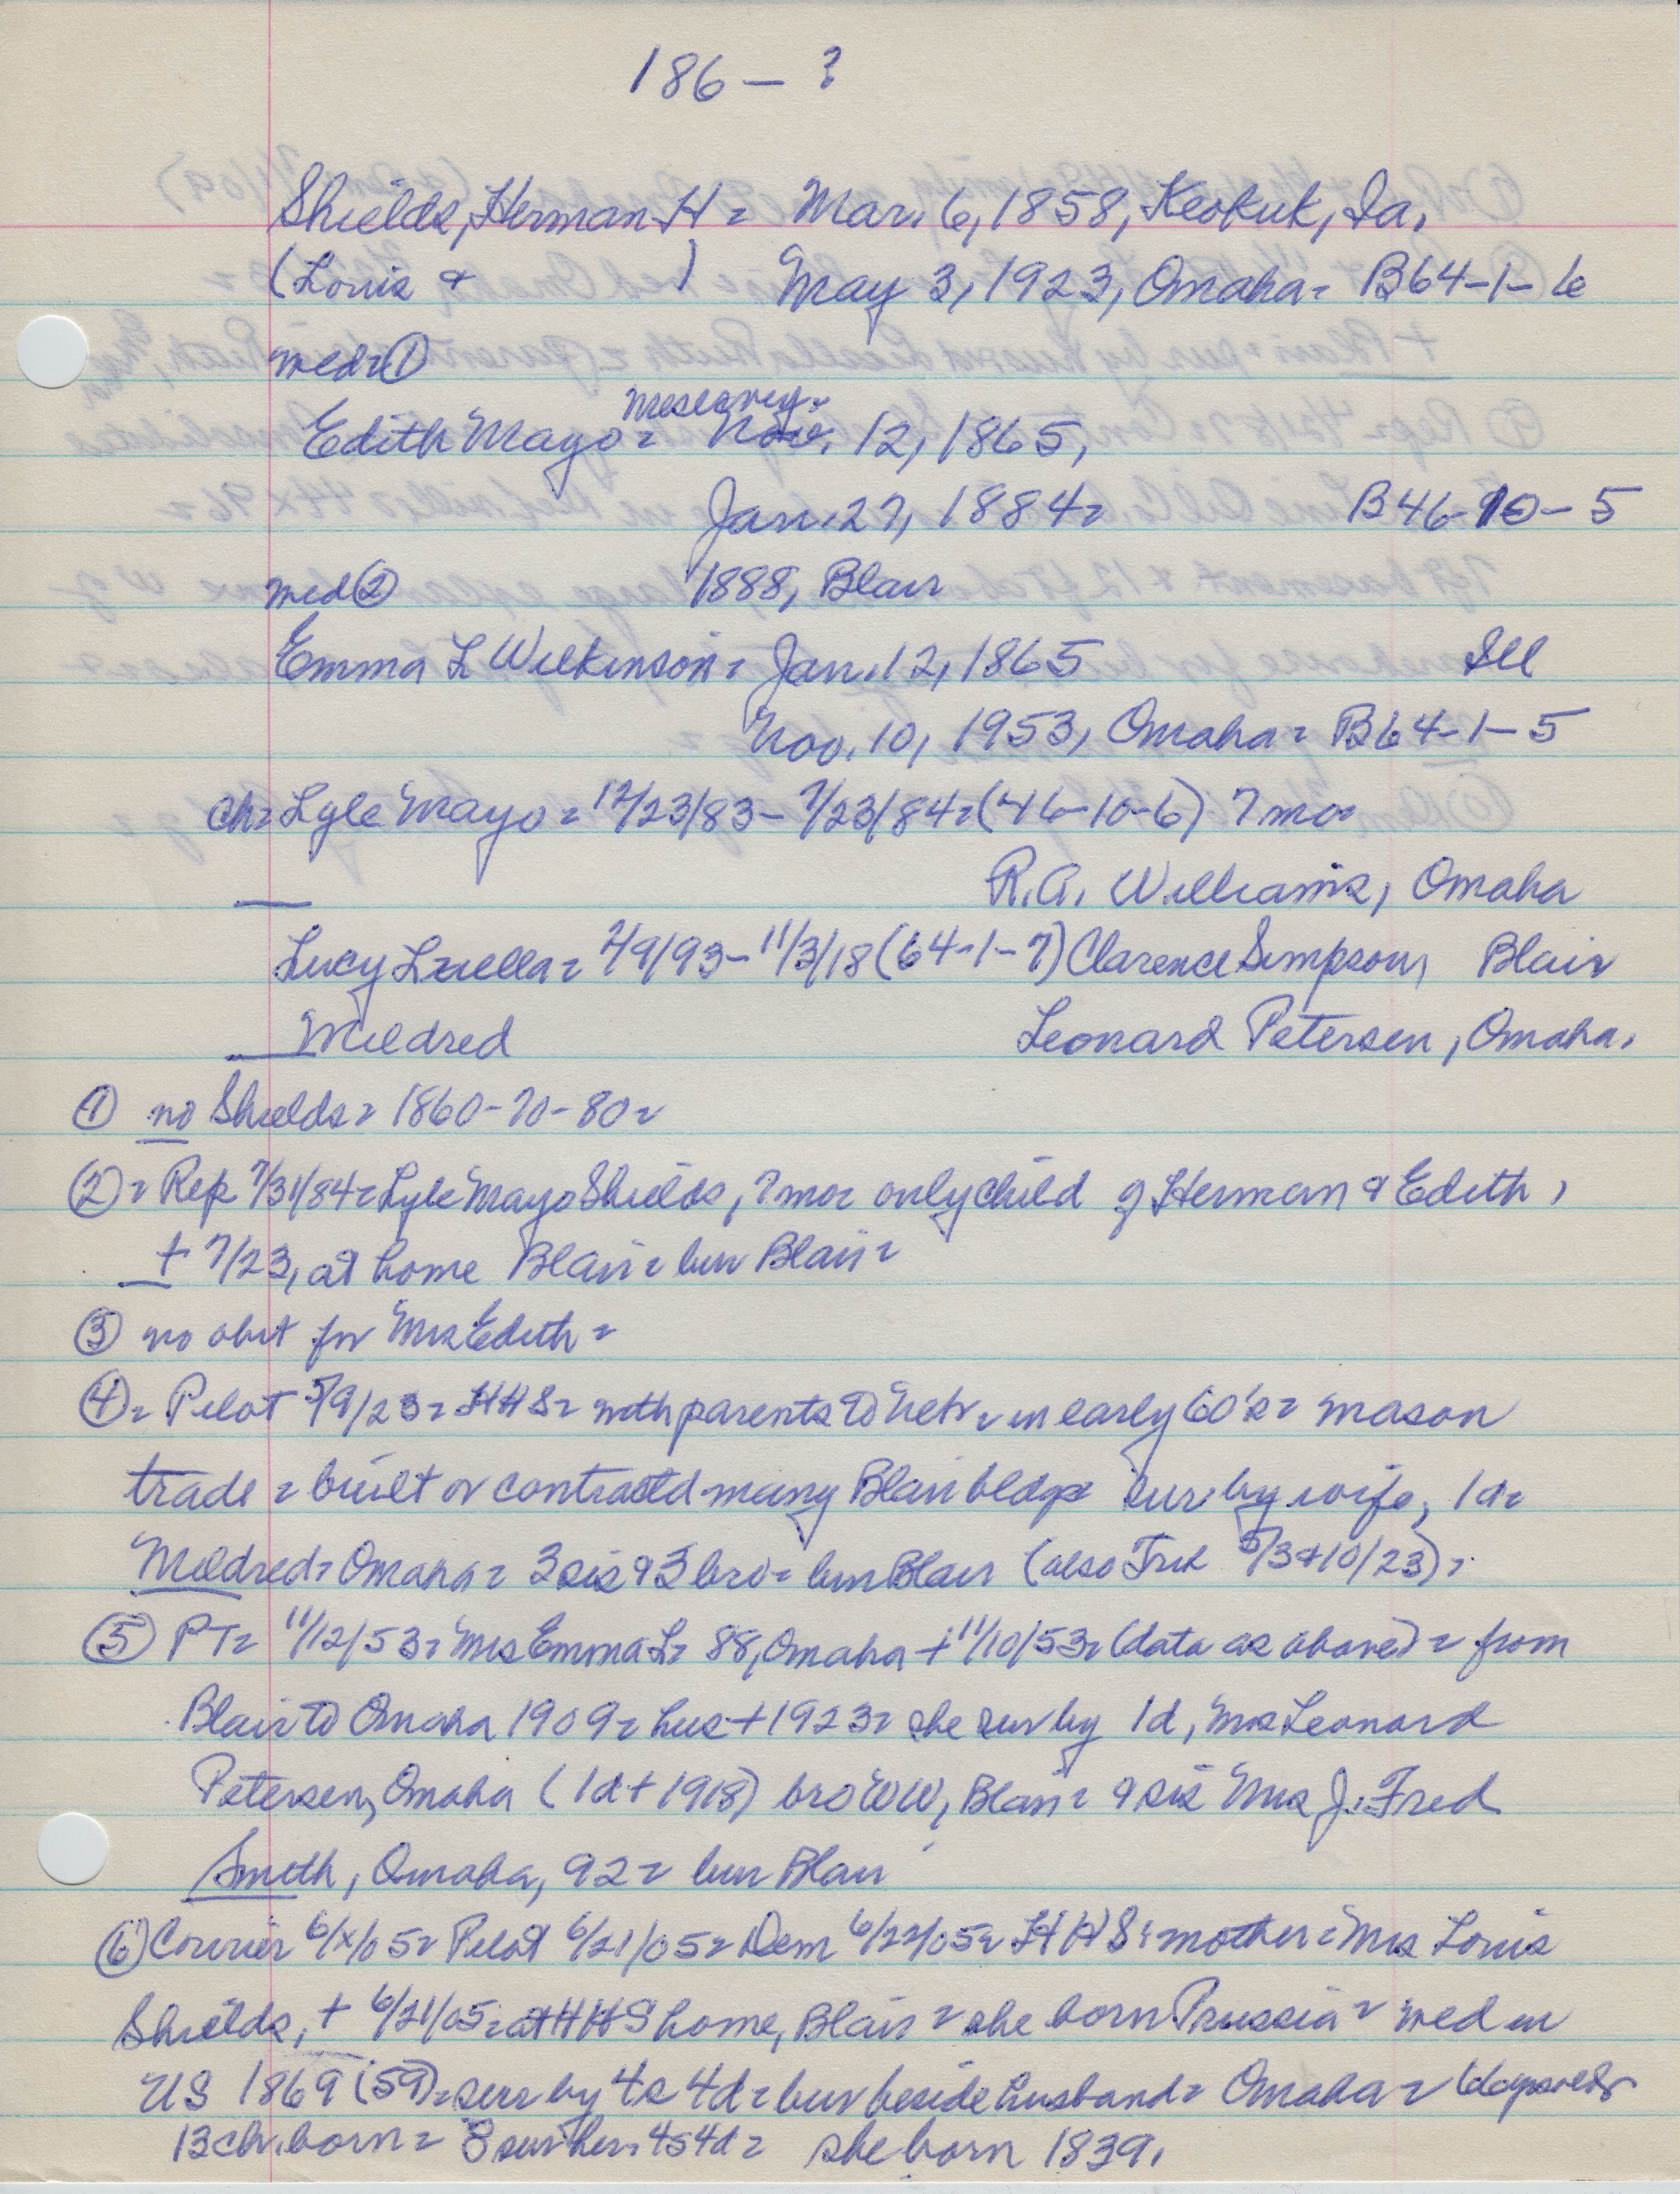 186 — ?
Shields, Herman H = Mar. 6, 1858, Keokuk, Ia.
(Louis & ) May 3, 1923, Omaha = B64-1-6
med = ①
Meservey =
Edith Mayo = Nov. 12, 1865,
Jan. 27, 1884 = B46-10-5
med ② 1888, Blair
Emma L Wilkinson = Jan. 12, 1865 Ill
Nov. 10, 1953, Omaha = B64-1-5
ch = Lyle Mayo = 12/23/83 - 7/23/84 = (46-10-6) 7 mo =
R.A. Williams, Omaha
Lucy Luella = 7/9/93 - 11/3/18 (64-1-7) Clarence Simpson, Blair
Mildred Leonard Petersen, Omaha.
① no Shields = 1860-70-80 =
② = Rep 7/31/84 = Lyle Mayo Shields, 7 mo = only child of Herman & Edith,
+ 7/23, at home Blair = bur Blair =
③ no obit for Mrs Edith =
④ = Pilot 5/9/23 = HHS = with parents to Nebr = in early 60's = mason
trade = built or contractd many Blair bldgs sur by wife, 1d =
Mildred = Omaha = 3 sis & 3 bro = bur Blair (also Trib 5/3 & 10/23) =
⑤ PT = 11/12/53 = Mrs Emma L = 88, Omaha + 11/10/53 = (data as above) = from
Blair to Omaha 1909 = hus + 1923 = she sur by 1d, Mrs Leonard
Petersen, Omaha (1d + 1918) bro WW, Blair = & sis Mrs J. Fred
Smith, Omaha, 92 = bur Blair
⑥ Courier 6/x/05 = Pilot 6/21/05 = Dem 6/22/05 = HHS = mother = Mrs Louis
Shields, + 6/21/05 = at HHS home, Blair = she born Prussia = med in
US 1869 (59) = surv by 4s 4d = bur beside husband = Omaha =
13 ch. born = 8 sur her = 4s 4d = she born 1839.